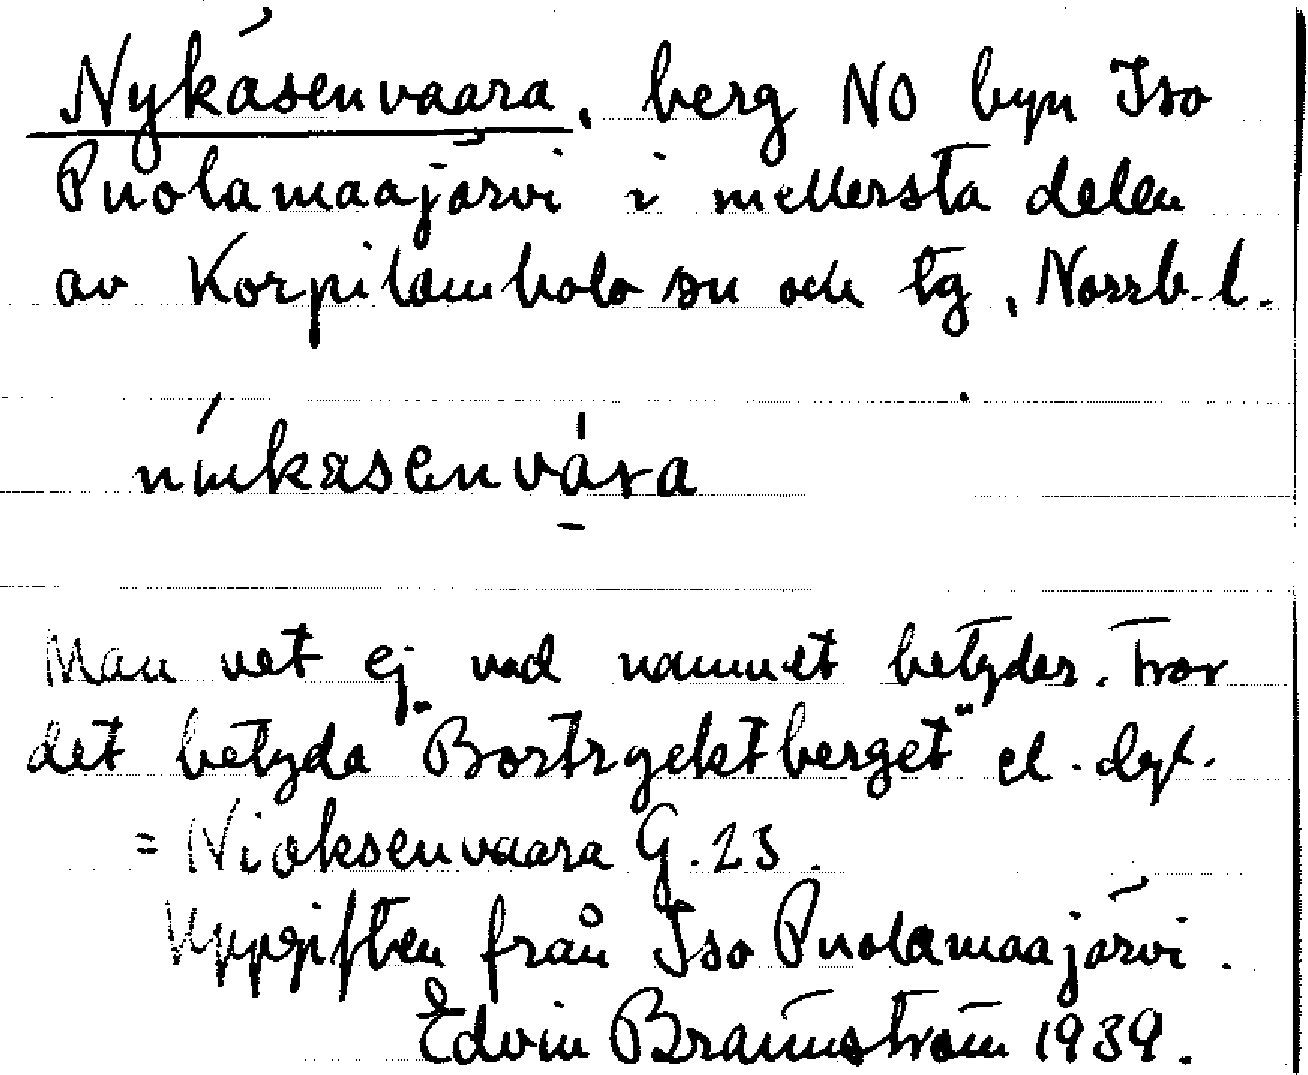 Nykäsenvaara, berg NO byn Iso
Puolamaajärvi i mellersta delen
av Korpilombolo sn och tg, Norrb. l.
nükäsenvára
Man vet ej vad namnet betyder. Tror
det betyda "Bortryektberget" el. dyl.
= Nioksenvaara G. 23.
Uppgiften från Iso Puolamaajärvi.
Edvin Brännström 1939.